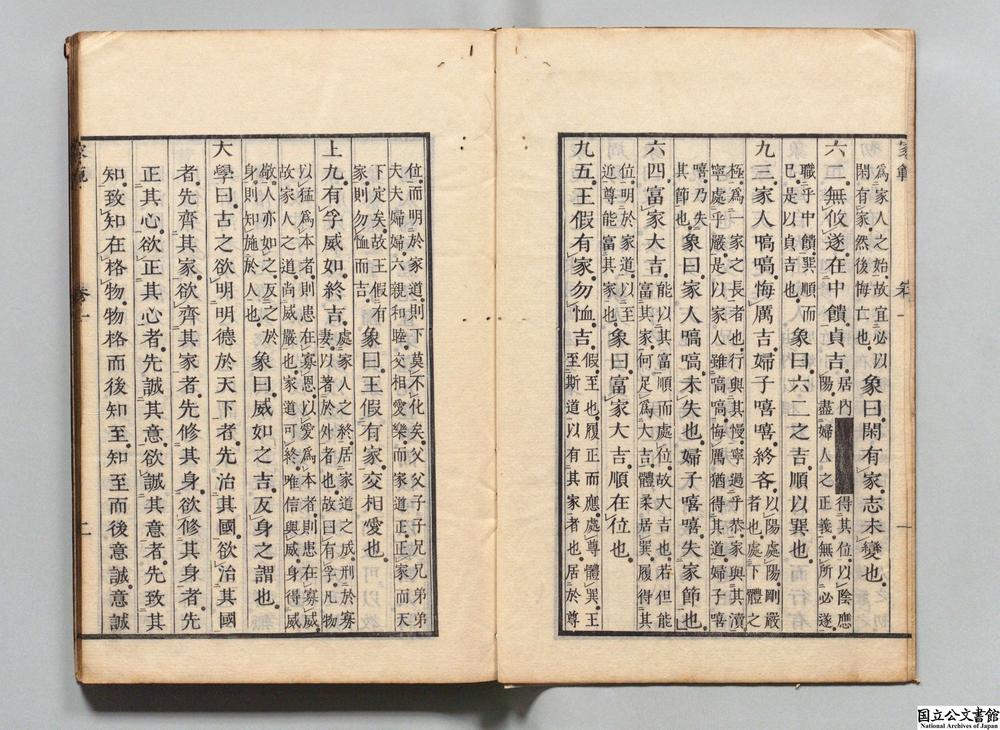 家範 卷一 一
為家人之始故宜必以
閑有家然後悔亡也
象曰閑有家志未變也
六二無攸遂在中饋貞吉
居內
得其位以陰應
陽盡婦人之正義無所必遂
職乎中饋巽順而
已是以貞吉也
象曰六二之吉順以巽也
九三家人嗃嗃悔厲吉婦子嘻嘻終吝
以陽處陽剛嚴
者也處下體之
極為一家之長者也行與其慢寧過乎恭家與其瀆
寧處乎嚴是以家人雖嗃嗃悔厲猶得其道婦子嘻
嘻乃失
其節也
象曰家人嗃嗃未失也婦子嘻嘻失家節也
六四富家大吉
能以其富順而處位故大吉也若但能
富其家何足為大吉體柔居巽履得其
位明於家道以至
近尊能富其家也
象曰富家大吉順在位也
九五王假有家勿恤吉
假至也履正而應處尊體巽王
至斯道以有其家者也居於尊
位而明於家道則下莫不化矣父父子子兄兄弟弟
夫夫婦婦六親和睦交相愛樂而家道正正家而天
下定矣故王假有
家則勿恤而吉
象曰王假有家交相愛也
上九有孚威如終吉
處家人之終居家道之成刑於寡
妻以著於外者也故曰有孚凡物
以猛為本者則患在寡恩以愛為本者則患在寡威
故家人之道尚威嚴也家道可終唯信與威身得威
敬人亦如之反之於
身則知施於人也
象曰威如之吉反身之謂也
大學曰古之欲明明德於天下者先治其國欲治其國
者先齊其家欲齊其家者先修其身欲修其身者先
正其心欲正其心者先誠其意欲誠其意者先致其
知致知在格物物格而後知至知至而後意誠意誠
家範 卷一 二
国立公文書館
National Archives of Japan